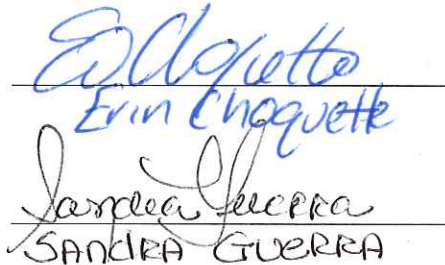 E Choquette
Erin Choquette
Sandra Guerra
SANdRA GUERRA